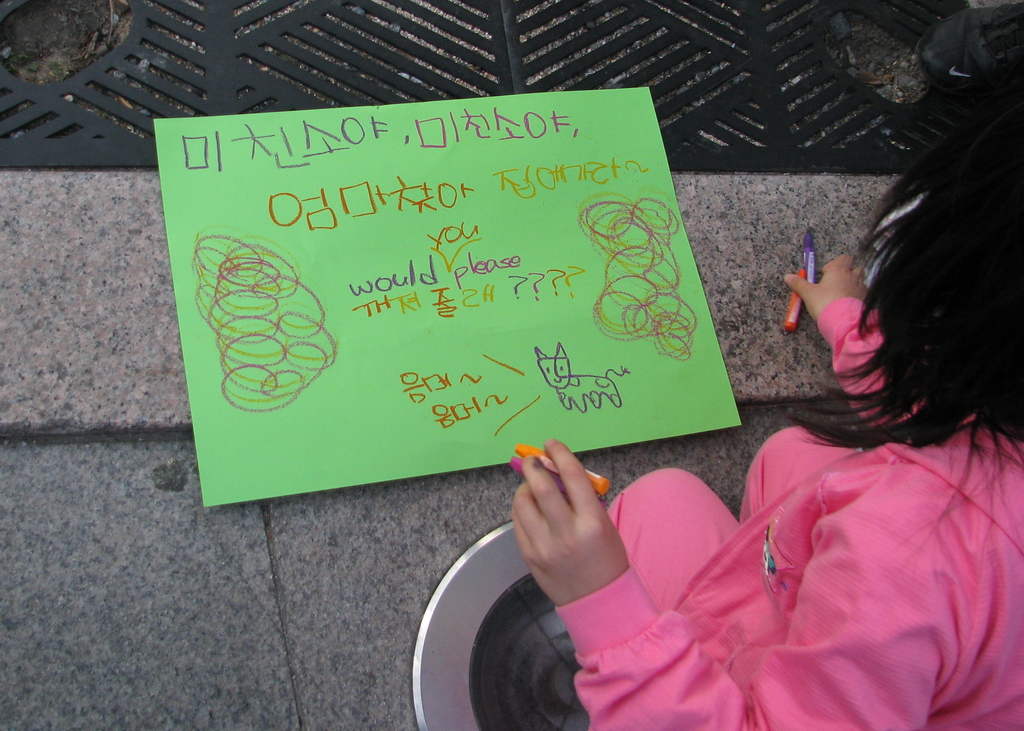 미친소야, 미친소야,
엄마찾아 집에가라~
you
would please
꺼져 줄래 ????
음머~
음머~